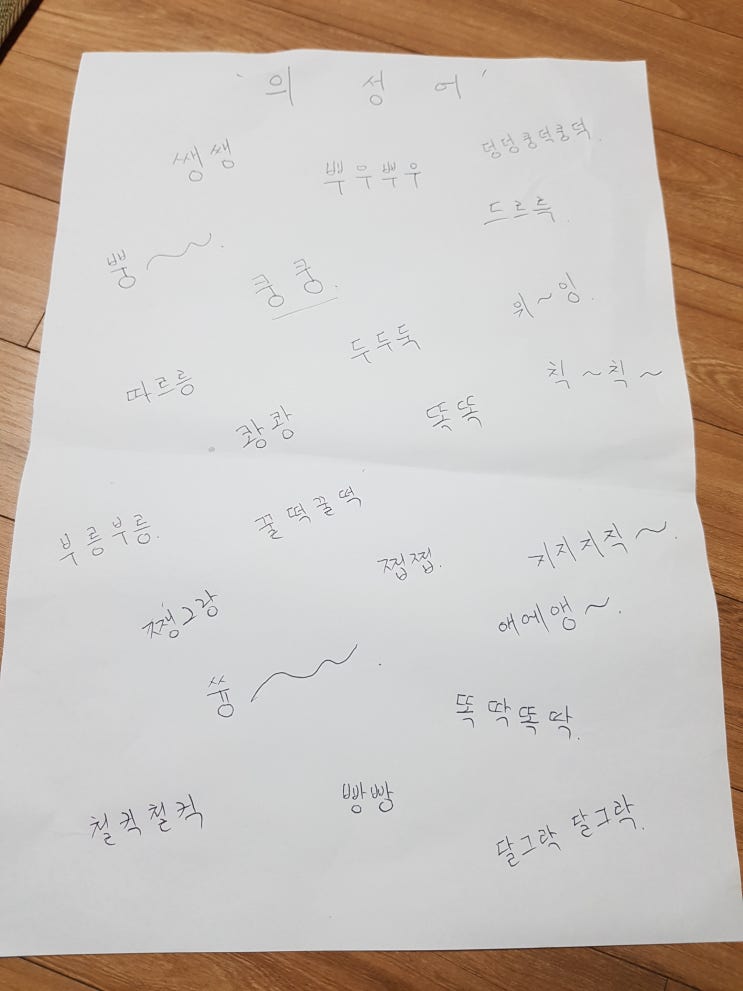 '의 성 어'
쌩쌩
뿌우뿌우
덩덩쿵덕쿵덕.
드르륵.
뿡~.
쿵쿵.
위~잉.
두두둑
따르릉
칙~칙~
쾅쾅
똑똑
부릉부릉.
꿀떡꿀떡
찝찝.
지지지직~.
쨍그랑
애에앵~.
쓩~.
똑딱똑딱.
철컥철컥
빵빵
달그락 달그락.